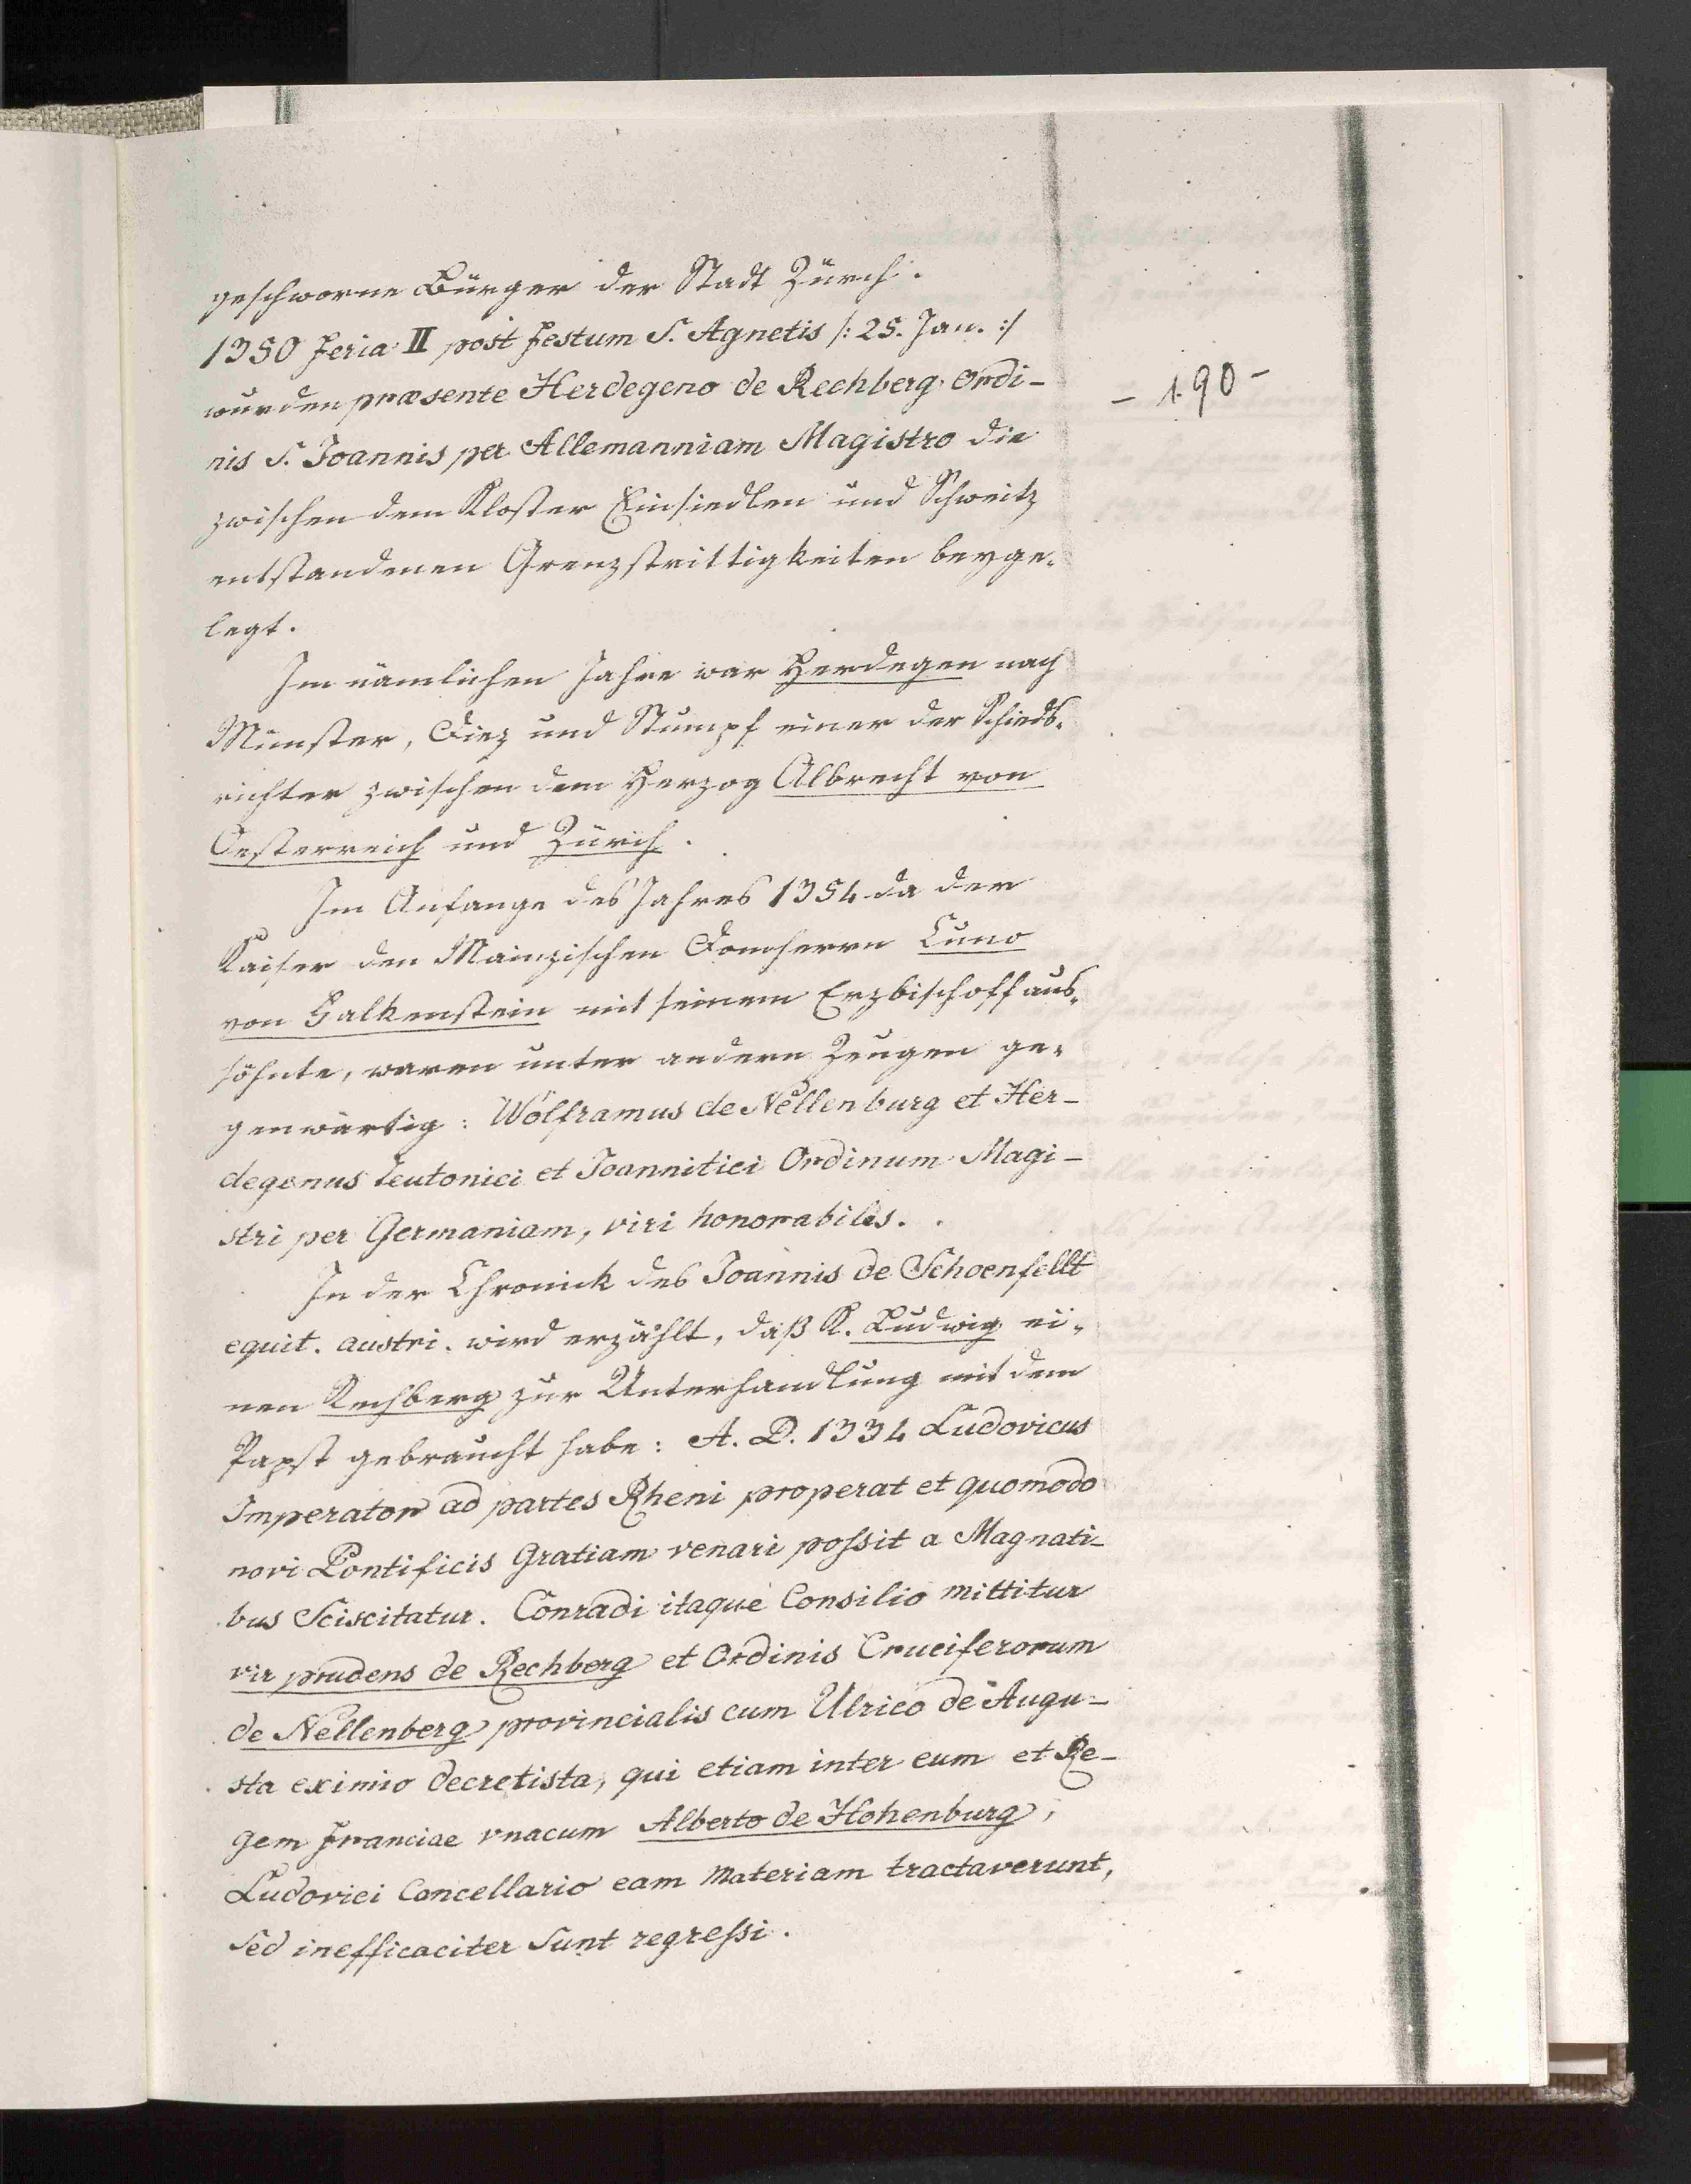 geschworne Bürger der Stadt Zürch.
1350 Feria II post Festum S. Agnetis /: 25. Jan. :/
wurden præsente Herdegeno de Rechberg Ordi-
- 190 -
nis S. Joannis per Allemanniam Magistro die
zwischen dem Kloster Einsiedlen und Schweitz
entstandenen Grenzstrittigkeiten beyge-
legt.
Im nämlichen Jahre war Herdegen nach
Münster, Diez und Stumpf einer der Schieds-
richter zwischen dem Herzog Albrecht von
Oesterreich und Zürich.
Im Anfange des Jahres 1354 da der
Kaiser den Mainzischen Domherrn Cuno
von Falkenstein mit seinem Erzbischoff aus-
söhnte, waren unter andern Zeugen ge-
genwärtig: Wolframus de Nellenburg et Her-
degenus teutonici et Joannitici Ordinum Magi-
stri per Germaniam, viri honorabiles.
In der Chronick des Joannis de Schoenfellt
equit. austri. wird erzählt, daß K. Ludwig ei-
nen Rechberg zur Unterhandlung mit dem
Papst gebraucht habe: A. D. 1334 Ludovicus
Imperator ad partes Rheni properat et quomodo
novi Pontificis Gratiam venari possit a Magnati-
bus Sciscitatur. Conradi itaque Consilio mittitur
vir prudens de Rechberg et Ordinis Cruciferorum
de Nellenberg provincialis cum Ulrico de Augu-
sta eximio decretista, qui etiam inter eum et Re-
gem Franciae vnacum Alberto de Hohenburg,
Ludovici Cancellario eam Materiam tractaverunt,
Sed inefficaciter Sunt regressi.